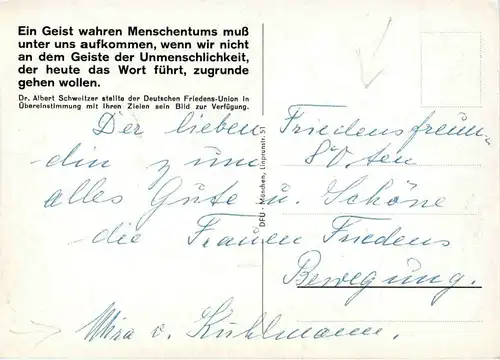 Ein Geist wahren Menschentums muß
unter uns aufkommen, wenn wir nicht
an dem Geiste der Unmenschlichkeit,
der heute das Wort führt, zugrunde
gehen wollen.
Dr. Albert Schweitzer stellte der Deutschen Friedens-Union in
Übereinstimmung mit ihren Zielen sein Bild zur Verfügung.
Der lieben Friedensfreun-
din zum 80.ten
alles Gute u. Schöne
die Frauen Friedens
Bewegung.
Mira v. Kühlmann.
DFU - München, Linprunstr. 51